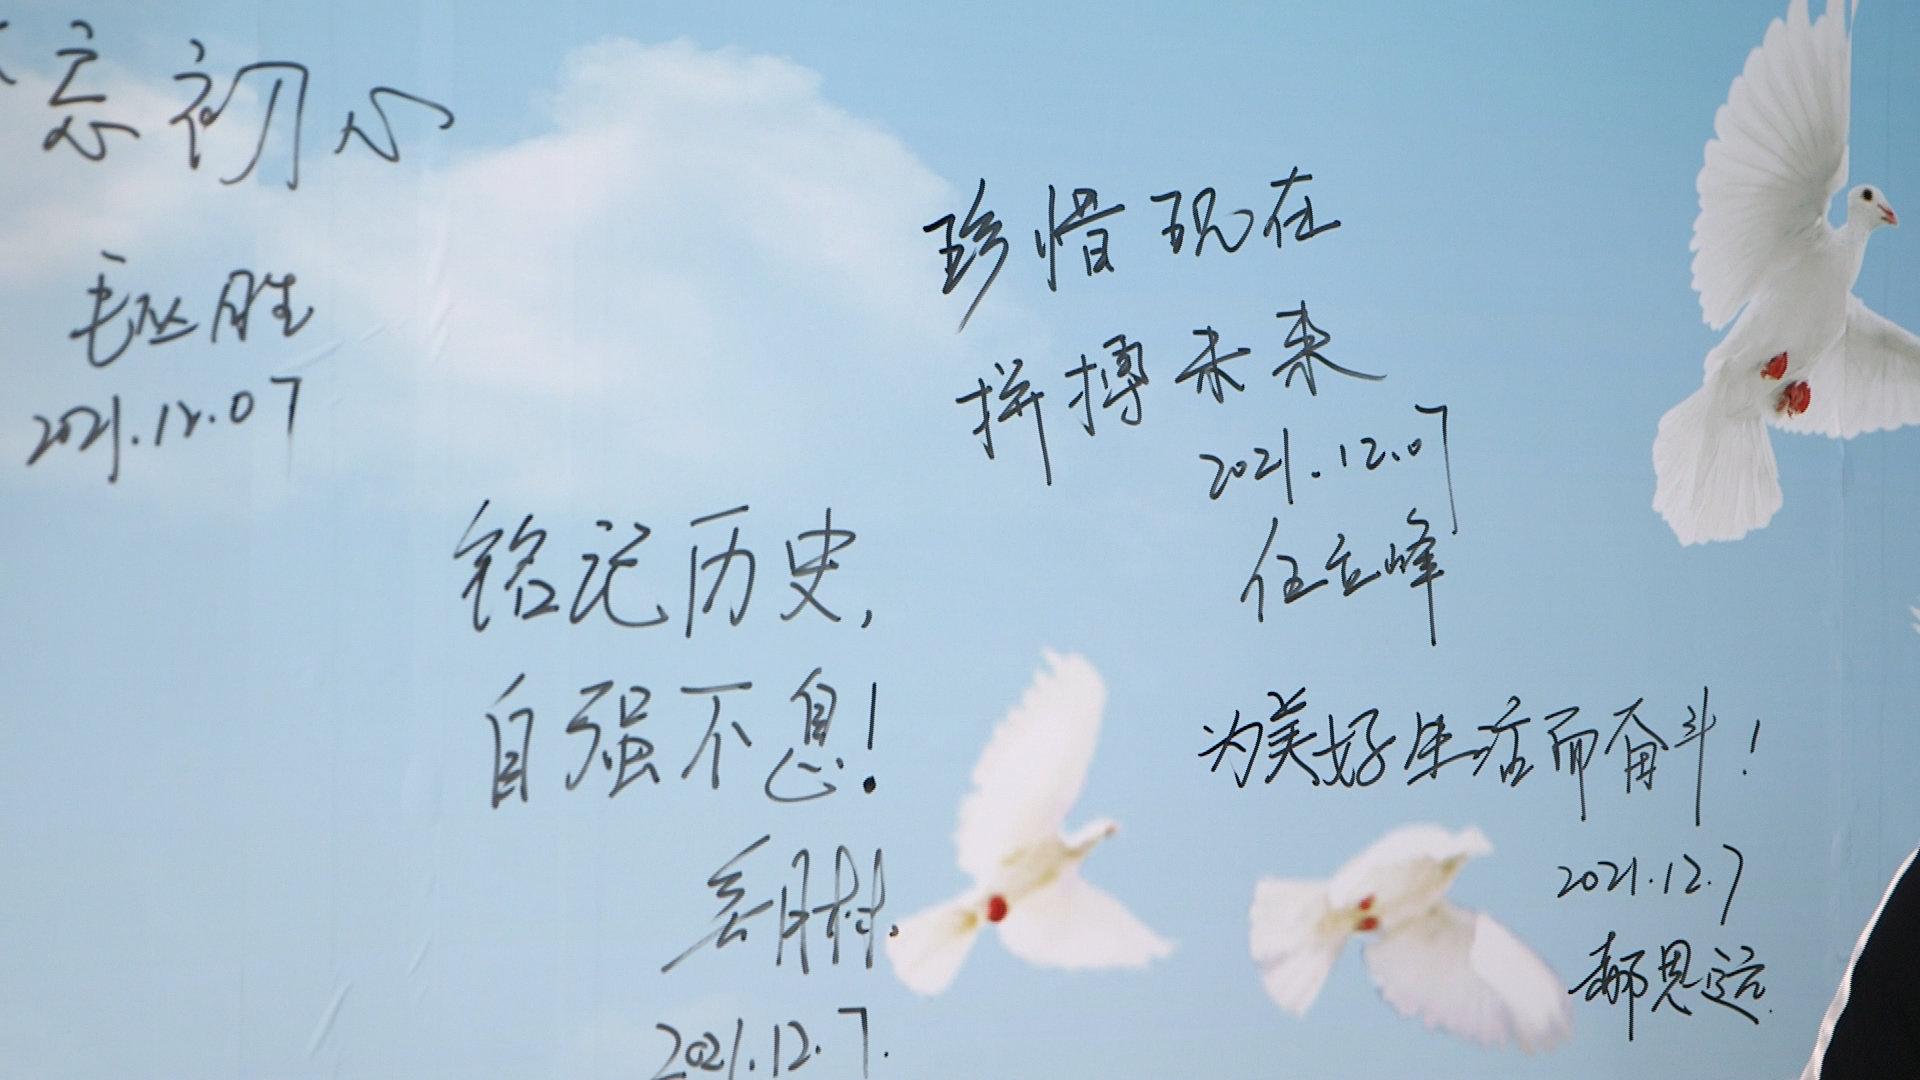 忘初心
毛丛胜
2021.12.07
珍惜现在
拼搏未来
2021.12.07
任立峰
铭记历史,
自强不息!
2021.12.7.
为美好生活而奋斗!
2021.12.7
郝思远